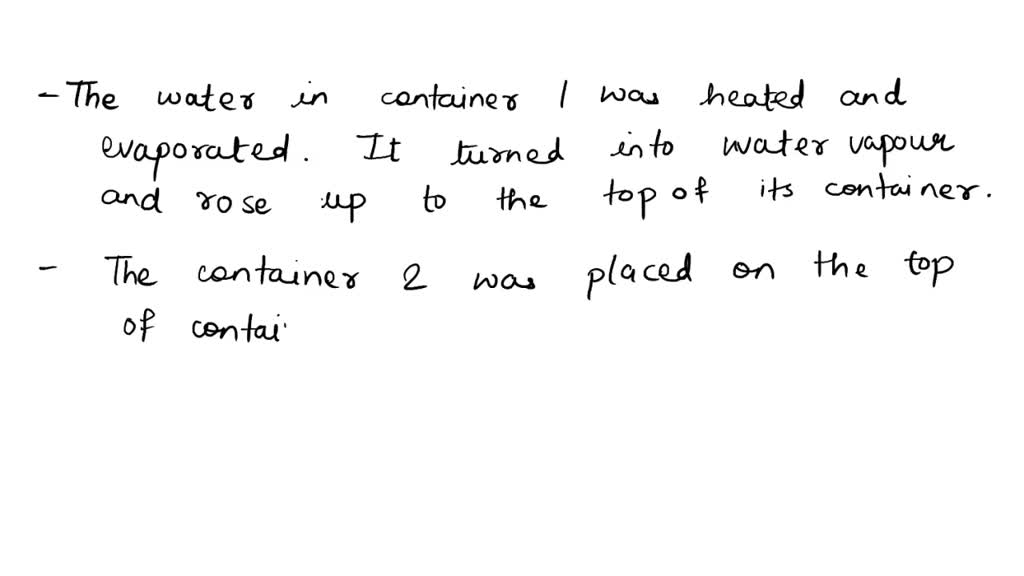 - The water in container 1 was heated and
evaporated. It turned into water vapour
and rose up to the top of its container.
- The container 2 was placed on the top
of contai